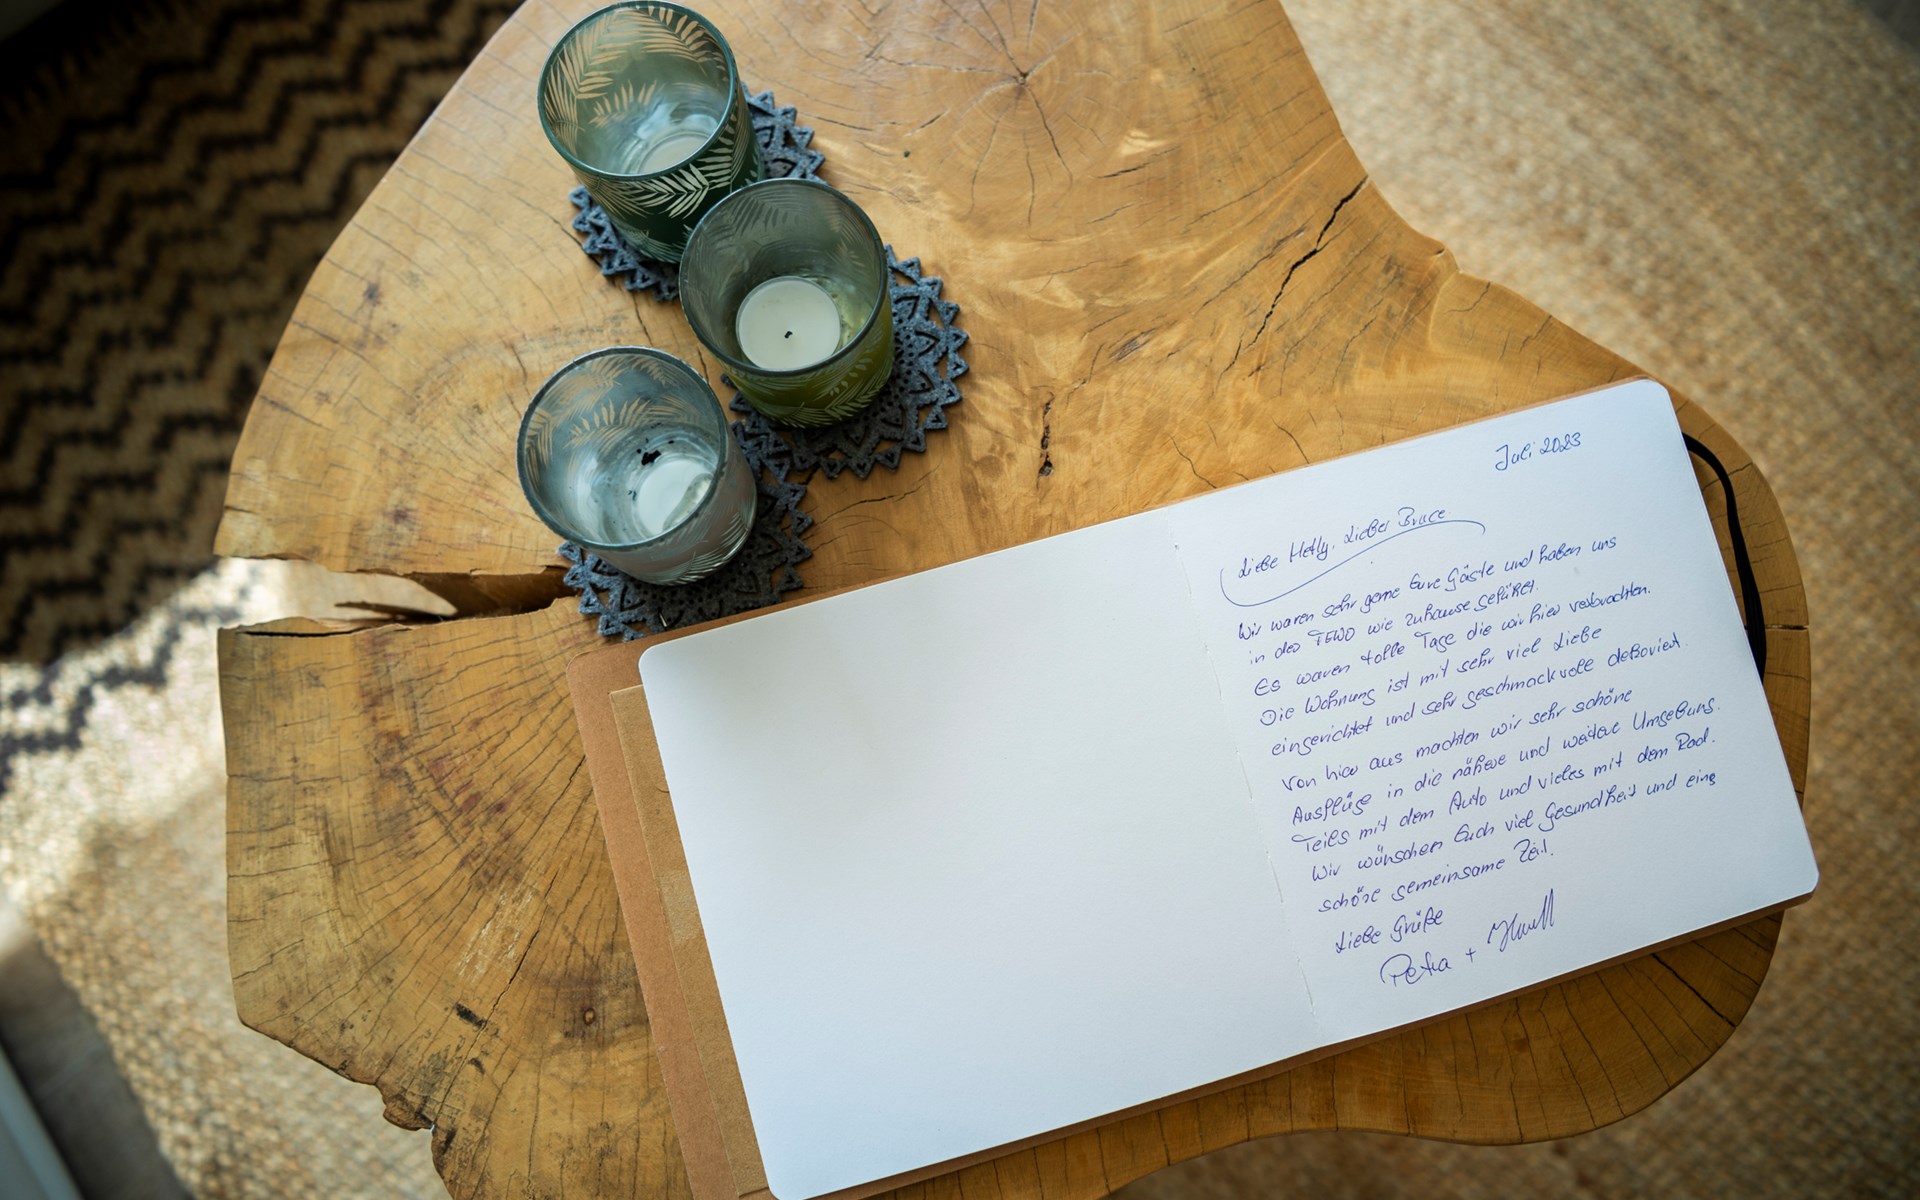 Juli 2023
Liebe Helly, Lieber Bruce
Wir waren sehr gerne Eure Gäste und haben uns
in der FEWO wie zuhause gefühlt.
Es waren tolle Tage die wir hier verbrachten.
Die Wohnung ist mit sehr viel Liebe
eingerichtet und sehr geschmackvoll dekoriert.
Von hier aus machten wir sehr schöne
Ausflüge in die nähere und weitere Umgebung.
Teils mit dem Auto und vieles mit dem Rad.
Wir wünschen Euch viel Gesundheit und eine
schöne gemeinsame Zeit.
Liebe Grüße
Petra +